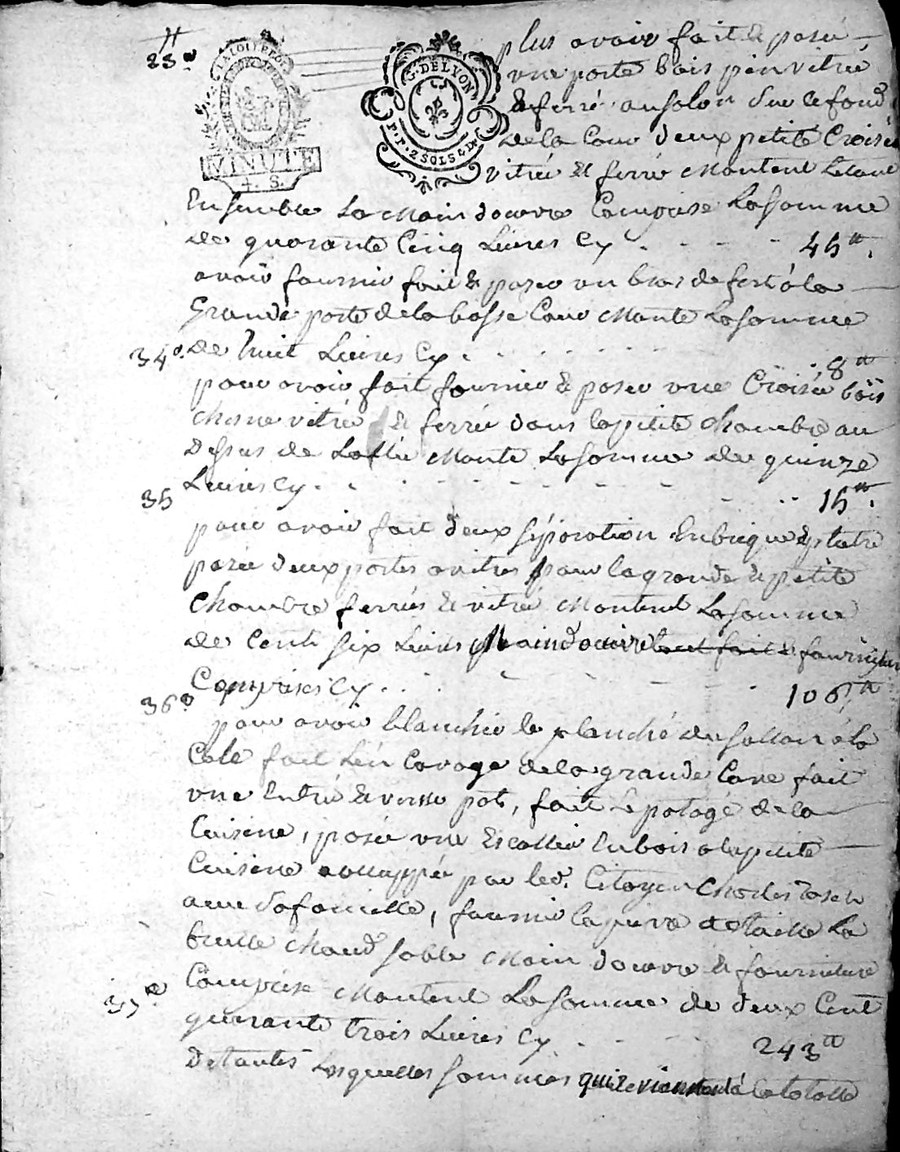 23e
LA LOI LE ROI
MINUTE
4. S.
G. DE LYON
P.P. 2 SOLS 6 D
plus avoir fait & posé
une porte bois pin vitrée
& ferré au salon sur le fond
de la Cour deux petite Croisée
vitrée & ferré Montent
Ensemble La Main doeuvre Comprise La Somme
de quarante Cinq Livres Cy . - - - 45tt.
avoir fournir fait & poser un bras de fert à la
Grande porte de la basse Cour Monte La Somme
34e. de huit Livres Cy . . . . . . . 8tt
pour avoir fait fournir & poser une Croisée bois
chesne vitrée & ferrée dans la petite chambre au
Dessus de Monte La Somme de quinze
Livres Cy . - . - - - - . . . 15tt.
35
pour avoir fait deux séparation En brique & platre
posée deux portes a vitres pour la grande & petite
Chambre ferrés & vitrée Montent La Somme
de Cent Six Livres Maindoeuvre tout fait & fourniture
Comprises Cy . . - - - - - 106tt
36e
pour avoir blanchir le planché du sallon à la
Cole fait L'en Cavage de la grande Cave fait
une Entré & verse pots, fait Le potagé de la
Cuisine, posée une Escallier En bois a la petite
Cuisine occuppée par led. Citoyen Charles Joseph
avec sa famille, fournir la piere de taille La
brique chaud sable Main doeuvre & fourniture
37e Comprise Montent La Somme de deux Cent
quarante trois Livres Cy . - - - 243tt
De toutes Lesquelles sommes qui reviennent à la totalle